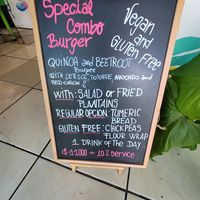 Special
Combo
Burger
Vegan
and
Gluten Free
QUINOA and BEETROOT
Burger
WITH LETTUCE, TOMATE, AVOCADO and
RED ONION!
WITH: SALAD or FRIED
PLANTAINS
REGULAR OPCION: TOMERIC
BREAD
GLUTEN FREE: CHICKPEAS
FLOUR WRAP
1 DRINK OF THE DAY
11000 + 10% service